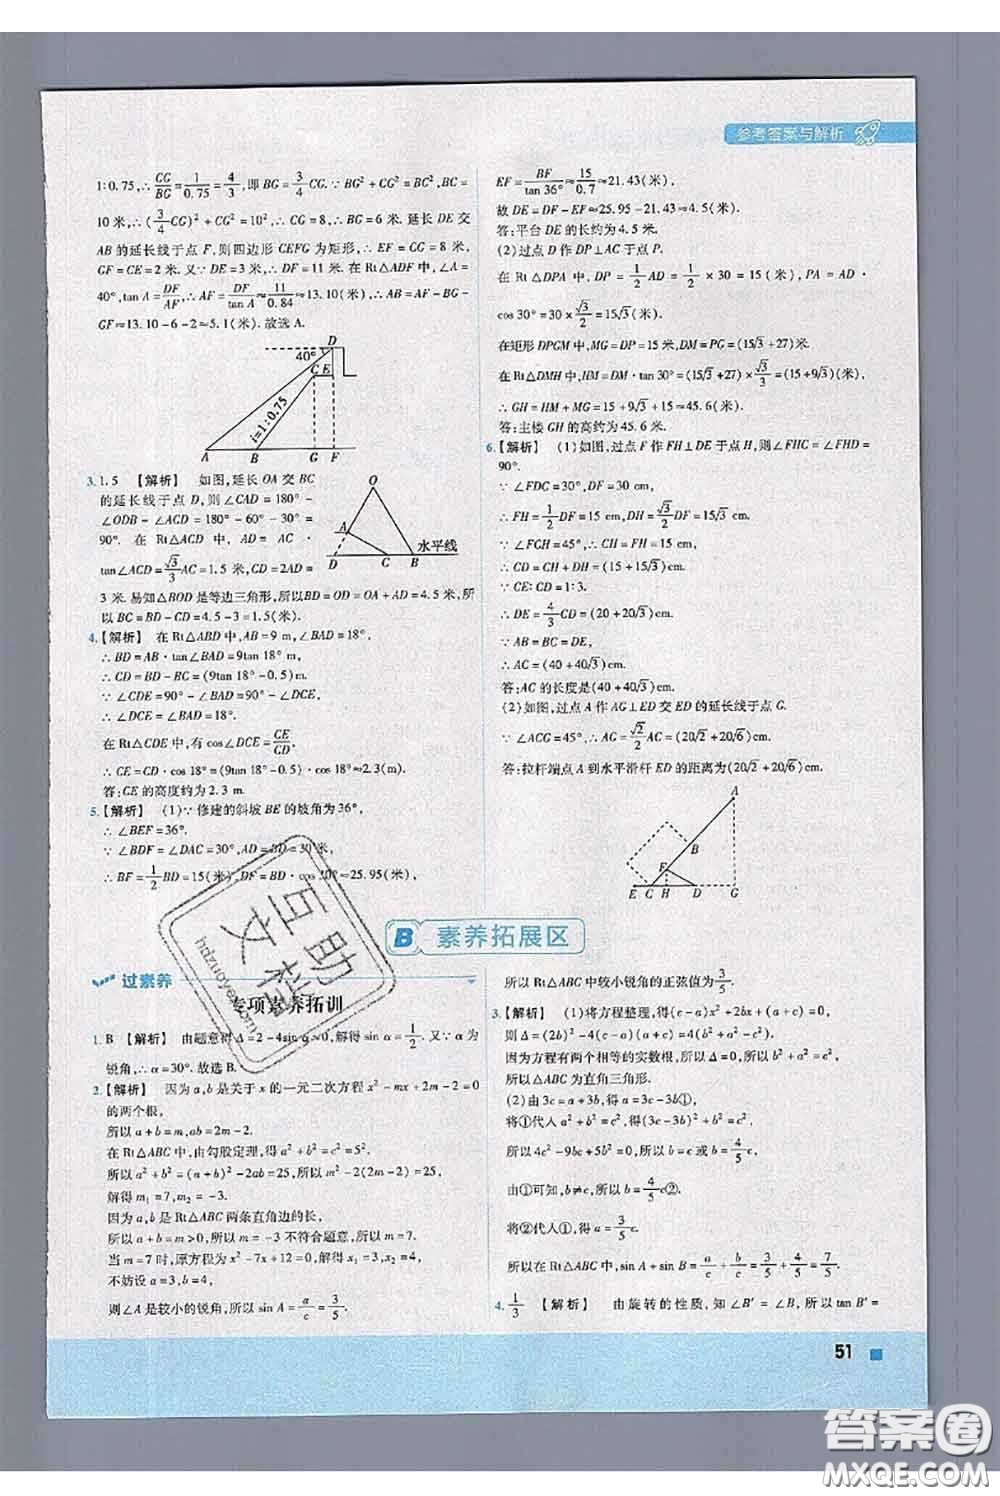 参考答案与解析
1∶0.75,∴CG/BG=1/0.75=4/3,即 BG=3/4CG.∵BG²+CG²=BC²,BC=
10 米,∴(3/4CG)²+CG²=10²,∴CG=8,∴BG=6 米. 延长 DE 交
AB 的延长线于点 F,则四边形 CEFG 为矩形,∴EF=CG=8 米,
GF=CE=2 米. 又∵DE=3 米,∴DF=11 米. 在 Rt△ADF 中,∠A=
40°,tan A=DF/AF,∴AF=DF/tan A≈11/0.84≈13.10(米),∴AB=AF-BG-
GF≈13.10-6-2≈5.1(米). 故选 A.
D
40°
C E
i=1∶0.75
A B G F
3. 1.5 【解析】 如图,延长 OA 交 BC
的延长线于点 D,则∠CAD=180°-
∠ODB-∠ACD=180°-60°-30°=
90°. 在 Rt△ACD 中, AD=AC·
tan∠ACD=√3/3AC=1.5 米,CD=2AD=
3 米. 易知△BOD 是等边三角形,所以BD=OD=OA+AD=4.5 米,所
以 BC=BD-CD=4.5-3=1.5(米).
O
A
水平线
D C B
4.【解析】 在 Rt△ABD 中,AB=9 m,∠BAD=18°,
∴BD=AB·tan∠BAD=9tan 18°,
∴CD=BD-BC=(9tan 18°-0.5)m.
∵∠CDE=90°-∠BAD,∠DCE=90°-∠CDE,
∴∠DCE=∠BAD=18°.
在 Rt△CDE 中,有 cos∠DCE=CE/CD,
∴CE=CD·cos 18°=(9tan 18°-0.5)·cos 18°≈2.3(m).
答:CE 的高度约为 2.3 m.
5.【解析】 (1)∵修建的斜坡 BE 的坡角为36°,
∴∠BEF=36°.
∵∠BDF=∠DAC=30°,AD=BD=30米,
∴BF=1/2BD=15(米),DF=BD·cos 30°≈25.95(米),
EF=BF/tan 36°≈15/0.7≈21.43(米),
故 DE=DF-EF≈25.95-21.43≈4.5(米).
答:平台 DE 的长约为 4.5 米.
(2)过点 D 作 DP⊥AC 于点 P.
在 Rt△DPA 中,DP=1/2AD=1/2×30=15(米),PA=AD·
cos 30°=30×√3/2=15√3(米).
在矩形 DPGM 中,MG=DP=15 米,DM=PG=(15√3+27)米.
在 Rt△DMH 中,HM=DM·tan 30°=(15√3+27)×√3/3=(15+9√3)米,
∴GH=HM+MG=15+9√3+15≈45.6(米).
答:主楼 GH 的高约为 45.6 米.
6.【解析】 (1)如图,过点 F 作 FH⊥DE 于点 H,则∠FHC=∠FHD=
90°.
∵∠FDC=30°,DF=30 cm,
∴FH=1/2DF=15 cm,DH=√3/2DF=15√3 cm.
∵∠FCH=45°,∴CH=FH=15 cm,
∴CD=CH+DH=(15+15√3)cm.
∵CE∶CD=1∶3.
∴DE=4/3CD=(20+20√3)cm.
∵AB=BC=DE,
∴AC=(40+40√3)cm.
答:AC 的长度是(40+40√3)cm.
(2)如图,过点 A 作 AG⊥ED 交 ED 的延长线于点 G.
∵∠ACG=45°,∴AG=√2/2AC=(20√2+20√6)cm.
答:拉杆端点 A 到水平滑杆 ED 的距离为(20√2+20√6)cm.
A
B
F
E C H D G
B 素养拓展区
过素养
专项素养拓训
1. B 【解析】 由题意得Δ=2-4sin α=0,解得 sin α=1/2. 又∵α为
锐角,∴α=30°. 故选 B.
2.【解析】 因为 a,b 是关于 x 的一元二次方程 x²-mx+2m-2=0
的两个根,
所以 a+b=m,ab=2m-2.
在 Rt△ABC 中,由勾股定理,得 a²+b²=c²=5²,
所以 a²+b²=(a+b)²-2ab=25,所以 m²-2(2m-2)=25,
解得 m₁=7,m₂=-3.
因为 a,b 是 Rt△ABC 两条直角边的长,
所以 a+b=m>0,所以 m=-3 不符合题意,所以 m=7.
当 m=7 时,原方程为 x²-7x+12=0,解得 x₁=3,x₂=4,
不妨设 a=3,b=4,
则∠A 是较小的锐角,所以 sin A=a/c=3/5,
所以 Rt△ABC 中较小锐角的正弦值为3/5.
3.【解析】 (1)将方程整理,得(c-a)x²+2bx+(a+c)=0,
则Δ=(2b)²-4(c-a)(a+c)=4(b²+a²-c²).
因为方程有两个相等的实数根,所以Δ=0,即 b²+a²=c²,
所以△ABC 为直角三角形.
(2)由 3c=a+3b,得 a=3c-3b①,
将①代入 a²+b²=c²,得(3c-3b)²+b²=c²,
所以 4c²-9bc+5b²=0,所以 b=c 或 b=4/5c.
由①可知,b≠c,所以 b=4/5c②.
将②代入①,得 a=3/5c.
所以在 Rt△ABC 中,sin A+sin B=a/c+b/c=3/5+4/5=7/5.
4. 1/3 【解析】 由旋转的性质,知∠B′=∠B,所以 tan B′=
51
互助文档
hdzuoye.com
答案圈
MXQE.COM